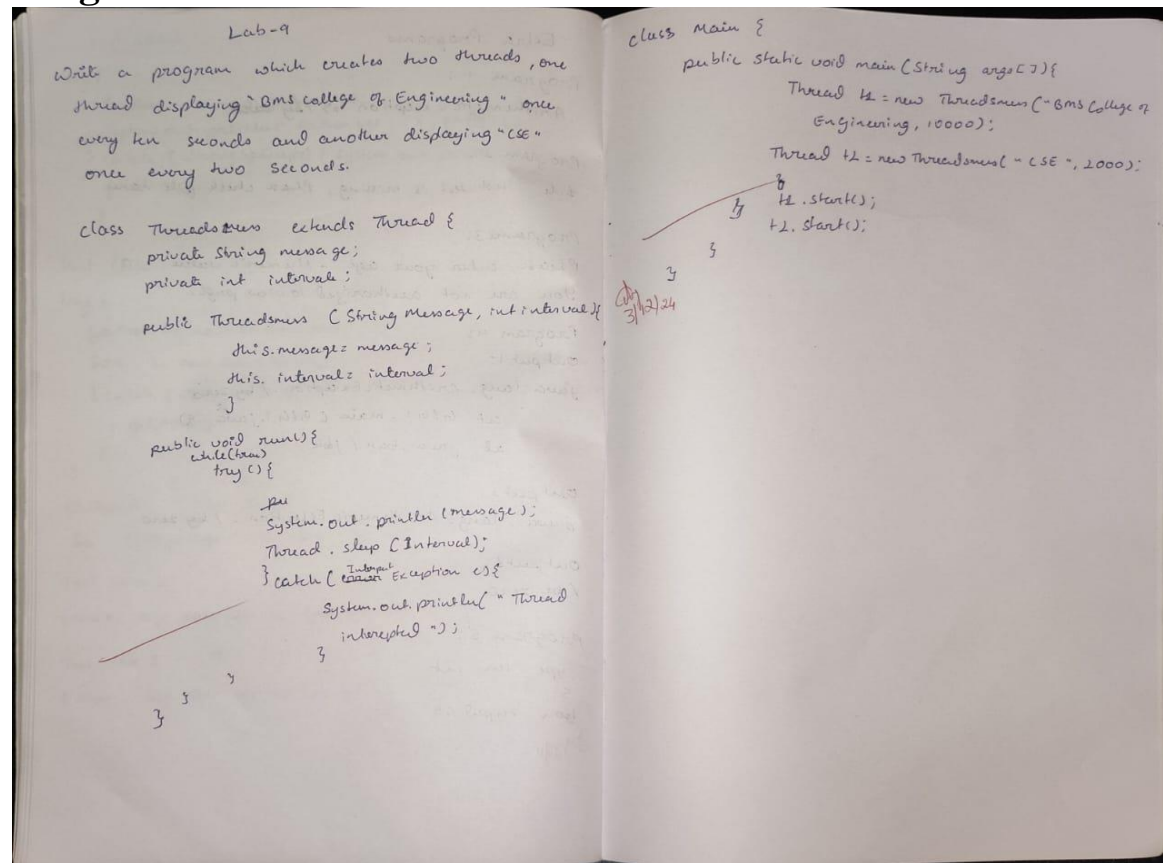 Lab-9
Write a program which creates two threads, one
thread displaying "BMS college of Engineering" once
every ten seconds and another displaying "CSE"
once every two seconds.
class Threadsmess extends Thread {
private String message;
private int intervale;
public Threadsmess (String Message, int interval){
this.message = message;
this.interval = interval;
}
public void run(){
while(true)
try () {
System.out.println (message);
Thread.sleep (Interval);
} catch ( Interrupt Exception e){
System.out.println( " Thread
interepted ");
}
}
}
}
class Main {
public static void main (String args[]){
Thread t1 = new Threadsmess ("BMS College of
Engineering, 10000);
Thread t2 = new Threadsmess( " CSE ", 2000);
}
} t1.start();
t2.start();
}
}
3/12/24